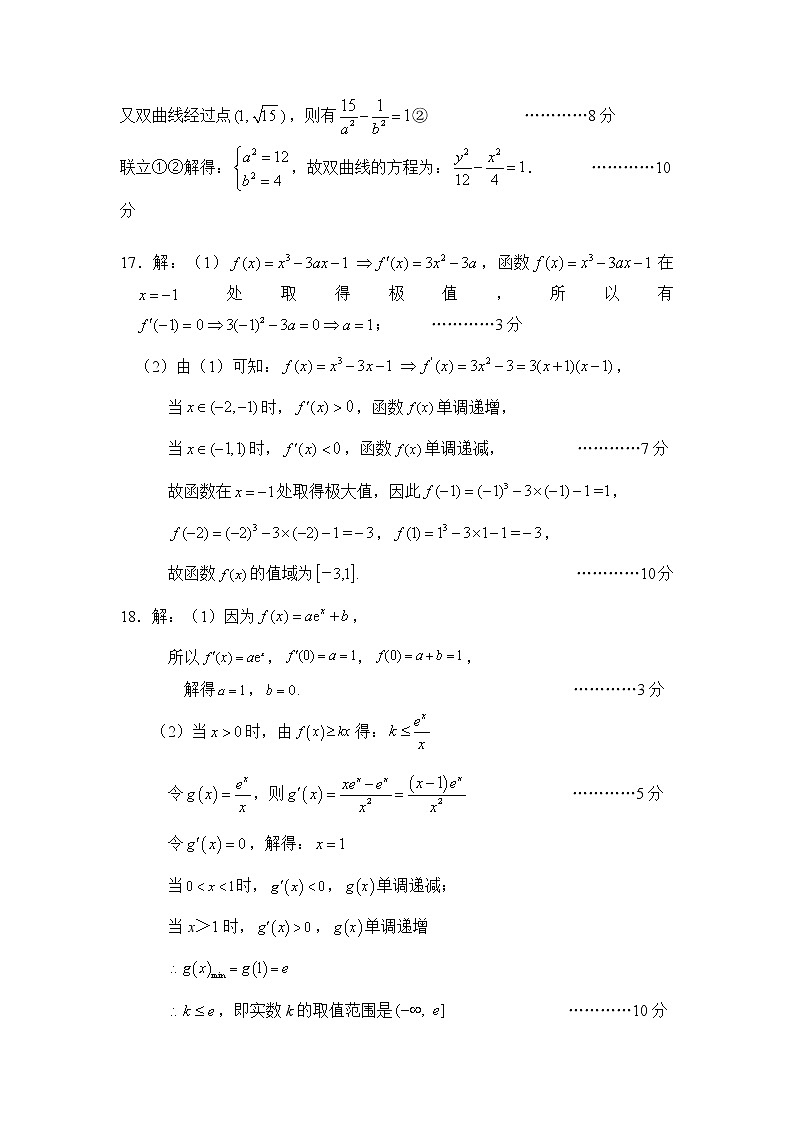 又双曲线经过点(1, √15),则有15/a² − 1/b² = 1② …………8分
联立①②解得:{a² = 12, b² = 4,故双曲线的方程为:y²/12 − x²/4 = 1. …………10
分
17.解:(1)f(x) = x³ − 3ax − 1 ⇒ f′(x) = 3x² − 3a,函数f(x) = x³ − 3ax − 1在
x = −1 处取得极值,所以有
f′(−1) = 0 ⇒ 3(−1)² − 3a = 0 ⇒ a = 1; …………3分
(2)由(1)可知:f(x) = x³ − 3x − 1 ⇒ f′(x) = 3x² − 3 = 3(x+1)(x−1),
当x ∈ (−2,−1)时,f′(x) > 0,函数f(x)单调递增,
当x ∈ (−1,1)时,f′(x) < 0,函数f(x)单调递减, …………7分
故函数在x = −1处取得极大值,因此f(−1) = (−1)³ − 3×(−1) − 1 = 1,
f(−2) = (−2)³ − 3×(−2) − 1 = −3,f(1) = 1³ − 3×1 − 1 = −3,
故函数f(x)的值域为[−3,1]. …………10分
18.解:(1)因为f(x) = aeˣ + b,
所以f′(x) = aeˣ,f′(0) = a = 1,f(0) = a + b = 1,
解得a = 1,b = 0. …………3分
(2)当x > 0时,由f(x) ≥ kx得:k ≤ eˣ/x
令g(x) = eˣ/x,则g′(x) = (xeˣ − eˣ)/x² = (x−1)eˣ/x² …………5分
令g′(x) = 0,解得:x = 1
当0 < x < 1时,g′(x) < 0,g(x)单调递减;
当x>1时,g′(x) > 0,g(x)单调递增
∴ g(x)min = g(1) = e
∴ k ≤ e,即实数k的取值范围是(−∞, e] …………10分